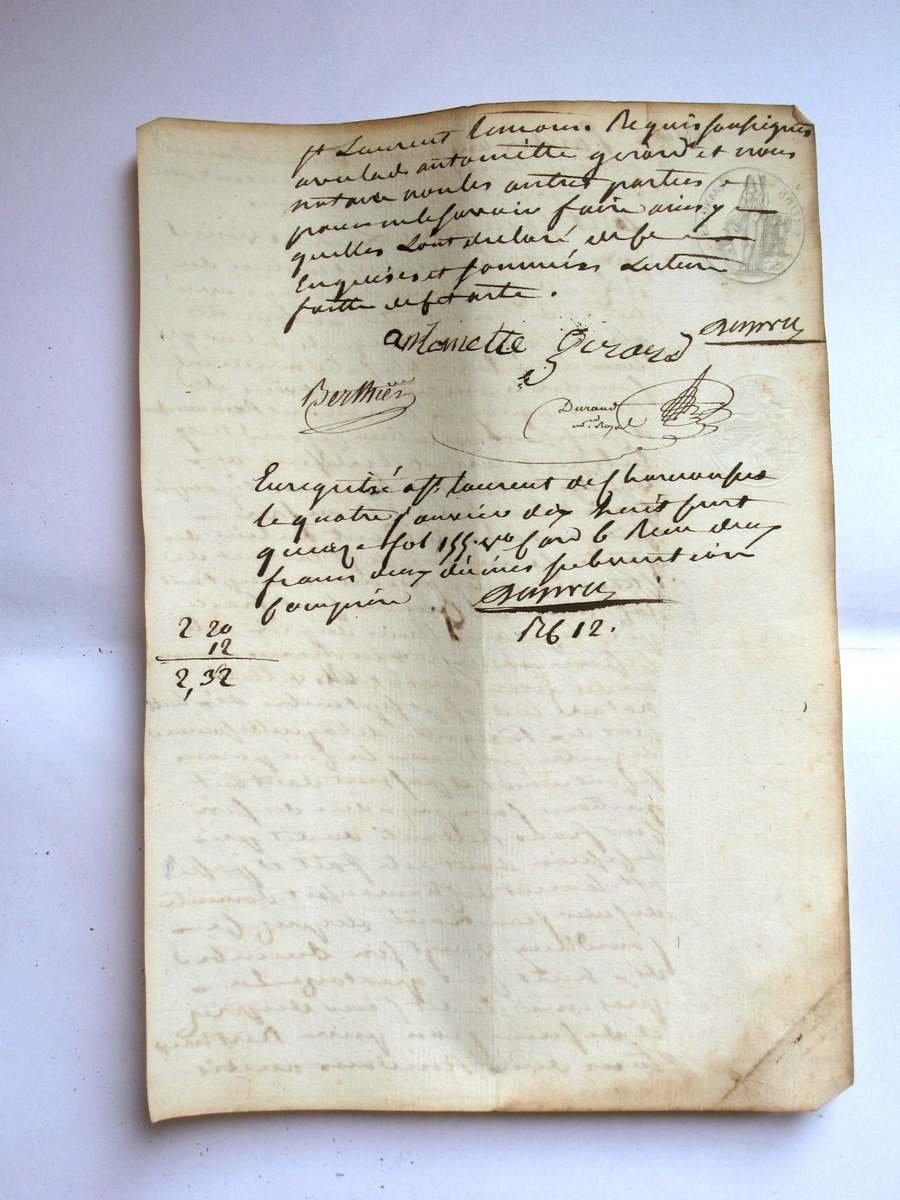 st Laurent temoins. Requis soussignés
avec lade antoinette girard et nous
notaire non les autres parties
pour ne le savoir faire ainsy
quelles l'ont declaré de ce
Enquises et sommées Lecture
faitte de fet acte.
antoinette girard
Berthier
Durand
no.re Royal
Enregistré a st. laurent de Chamousset
le quatre janvier dix huit cent
quinze fol 155 vo Case 6 Recu deux
francs deux décimes subvention
Comprise
R 6 12.
2 20
12
2,32